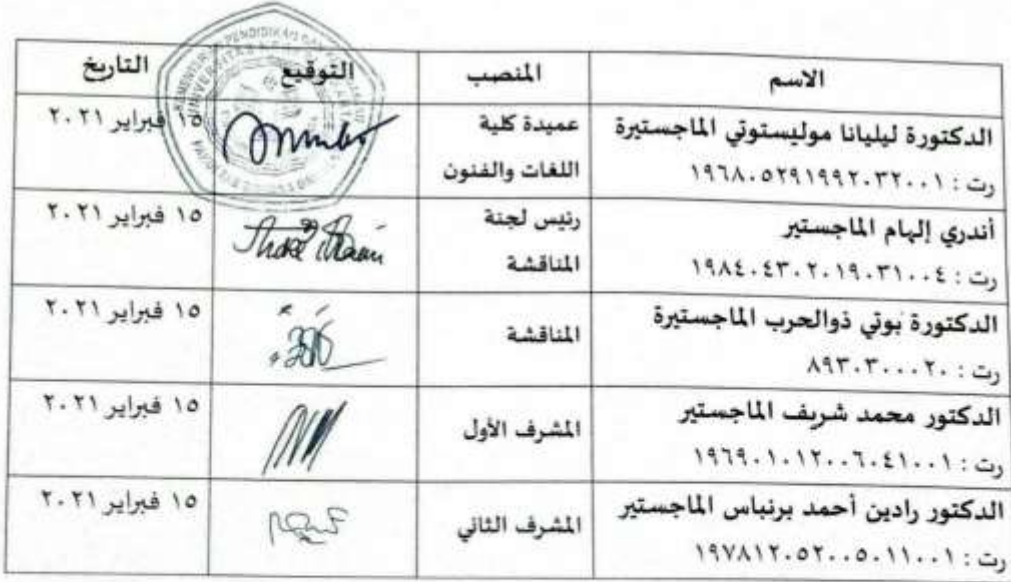 الاسم
المنصب
التوقيع
التاريخ
الدكتورة ليليانا موليستوتي الماجستيرة
رت : ١٩٦٨٠٥٢٩١٩٩٢٠٣٢٠٠١
عميدة كلية
اللغات والفنون
١٥ فبراير ٢٠٢١
أندري إلهام الماجستير
رت : ١٩٨٤٠٤٣٠٢٠١٩٠٣١٠٠٤
رئيس لجنة
المناقشة
١٥ فبراير ٢٠٢١
الدكتورة بوتي ذوالحرب الماجستيرة
رت : ٨٩٣٠٣٠٠٠٢٠
المناقشة
١٥ فبراير ٢٠٢١
الدكتور محمد شريف الماجستير
رت : ١٩٦٩٠١٠١٢٠٠٦٠٤١٠٠١
المشرف الأول
١٥ فبراير ٢٠٢١
الدكتور رادين أحمد برنباس الماجستير
رت : ١٩٧٨١٢٠٥٢٠٠٥٠١١٠٠١
المشرف الثاني
١٥ فبراير ٢٠٢١